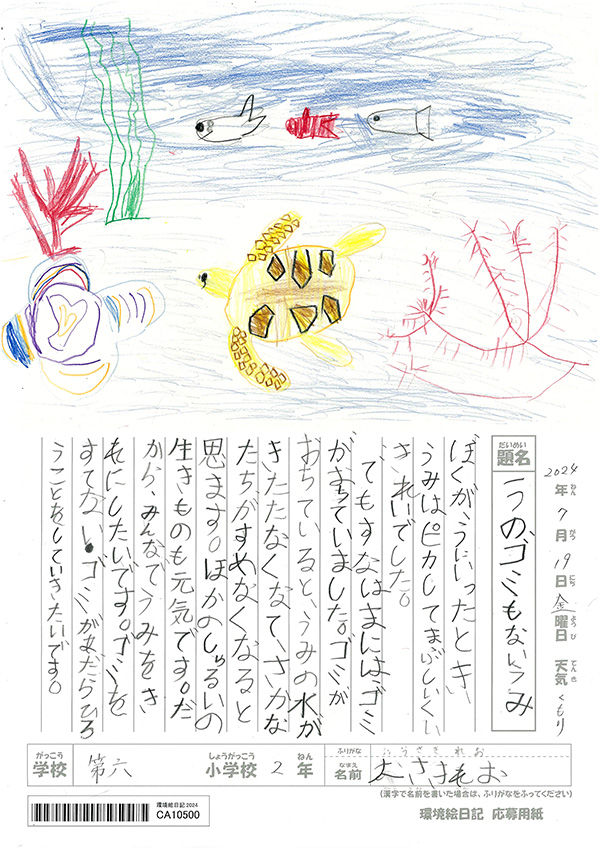 2024年7月19日金曜日 天気くもり
ねん がつ にち ようび てんき
だいめい
題名
一つの、ゴミもないうみ
ぼくが、うにいったとき、
うみはピカしてまぶしいくい
きれいでした。
でもすなはまにはゴミ
がおちていました。ゴミが
おちていると、うみの水が
きたたなくなて、さかな
たちがすめなくなると
思ます。ほかのしゅるいの
生きものも元気です。だ
から、みんなでうみをき
れにしたいです。ゴミを
すてない。ゴミがあたらひろ
うことをしていきたいです。
がっこう
学校
第六
しょうがっこう
小学校
2
ねん
年
ふりがな
なまえ
名前
(漢字で名前を書いた場合は、ふりがなをふってください)
環境絵日記2024
CA10500
環境絵日記 応募用紙